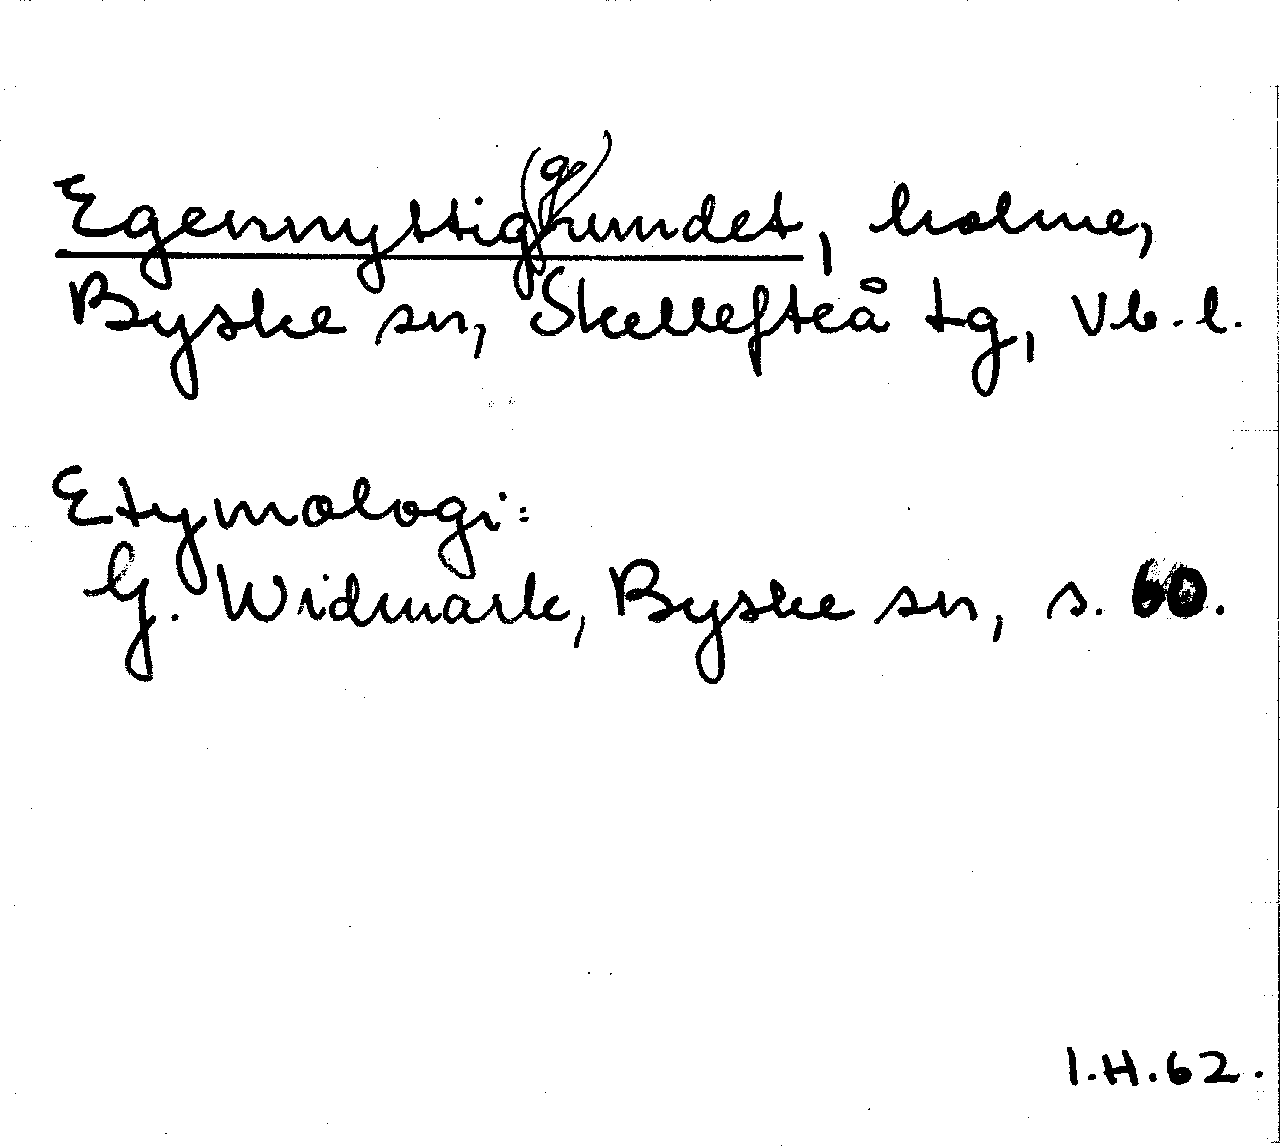 Egennyttig(g)rundet, holme,
Byske sn, Skellefteå tg, Vb.l.
Etymologi:
G. Widmark, Byske sn, s. 60.
I.H.62.